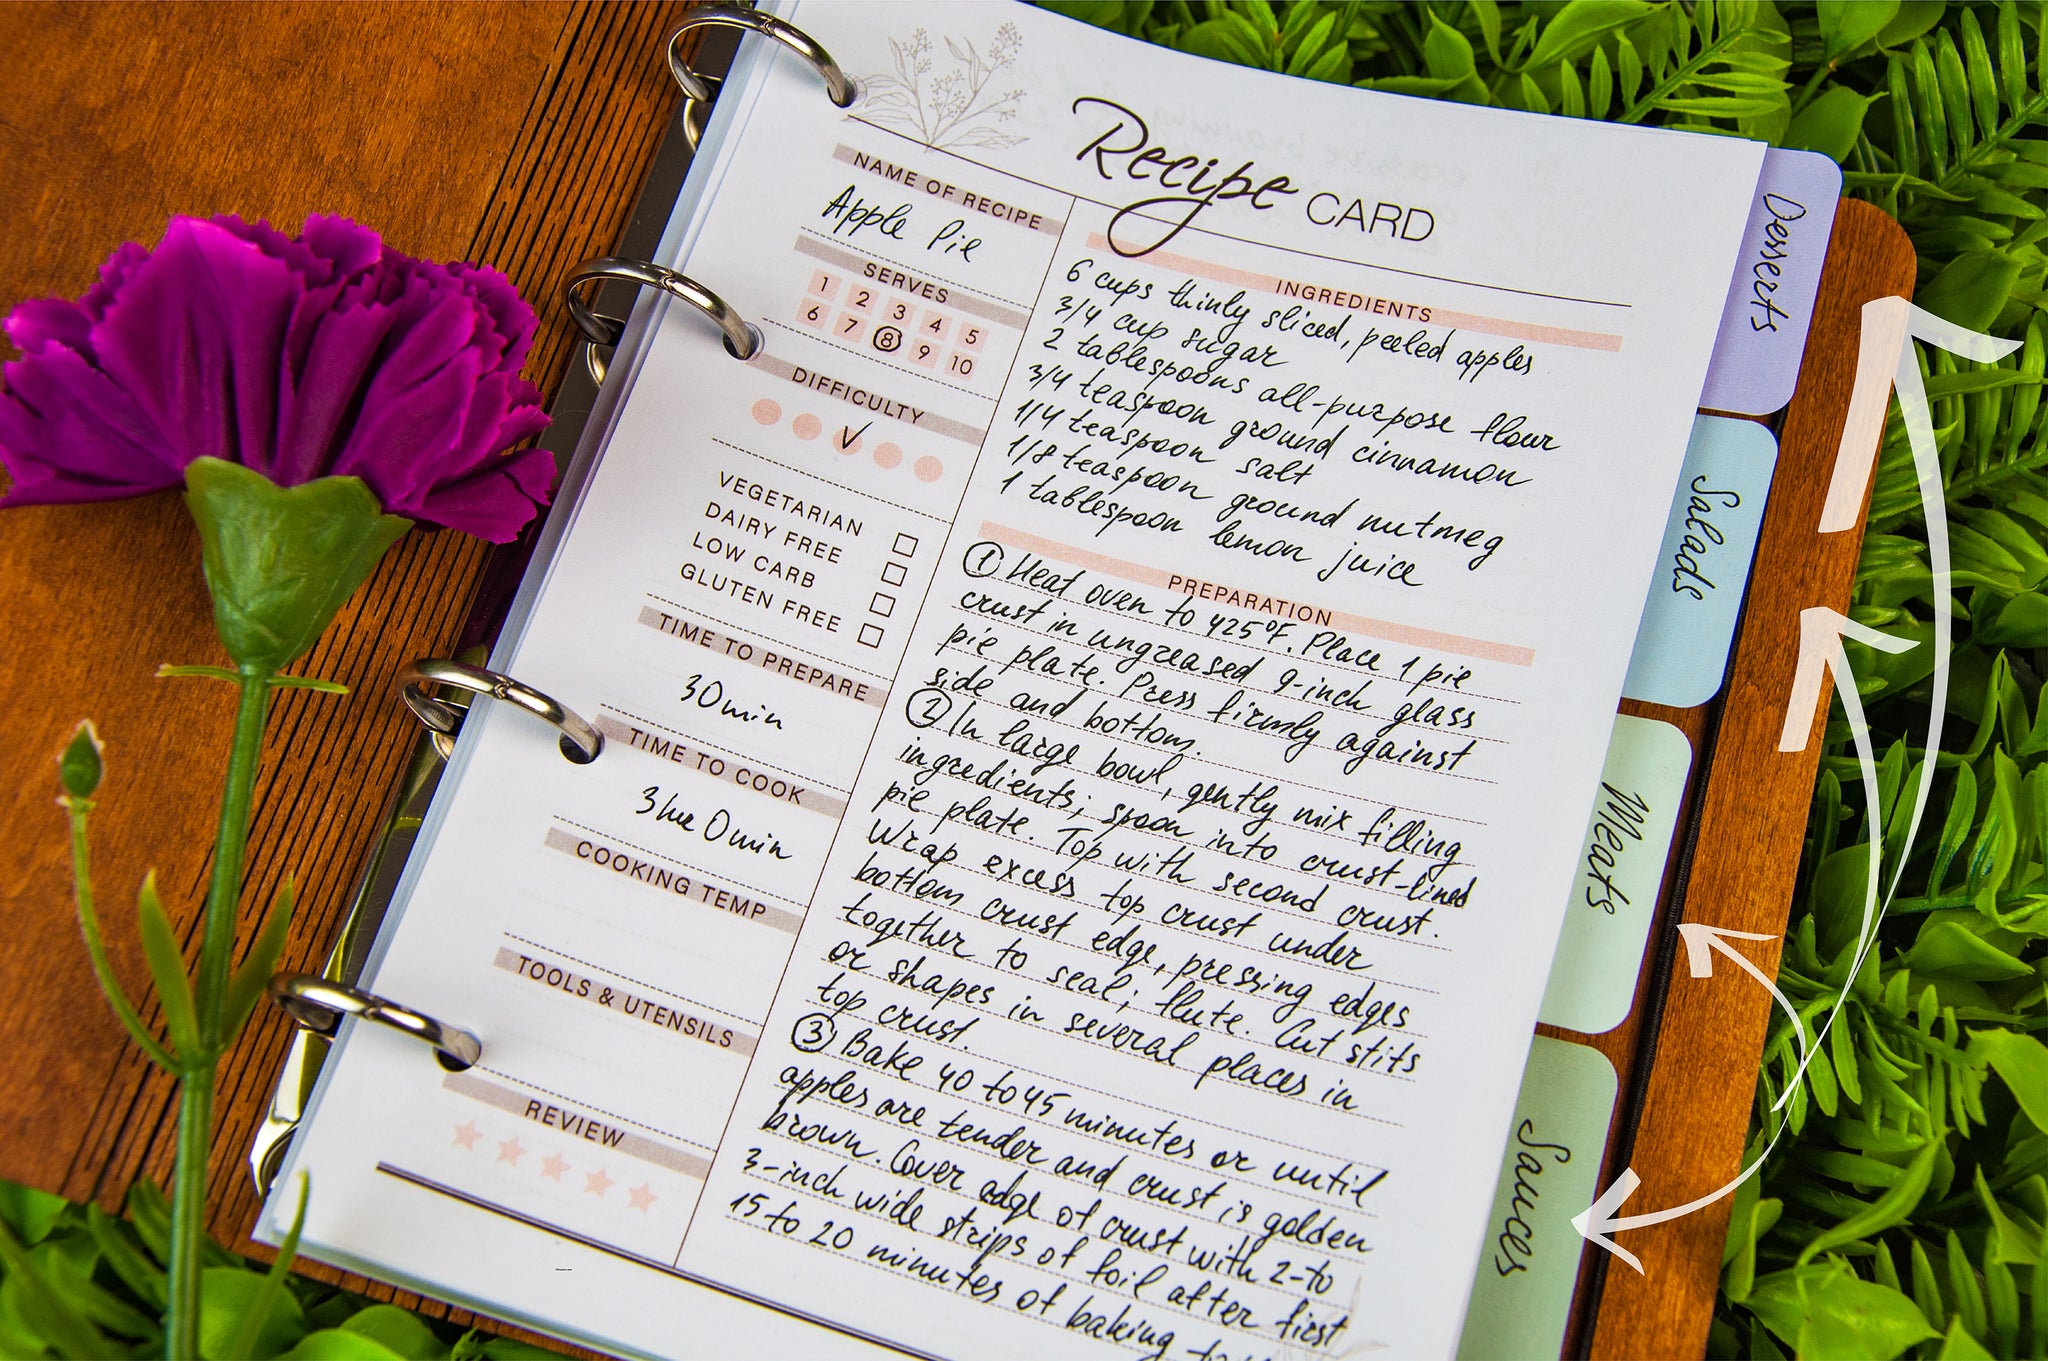 Recipe CARD
NAME OF RECIPE
Apple Pie
SERVES
1 2 3 4 5
6 7 8 9 10
DIFFICULTY
VEGETARIAN
DAIRY FREE
LOW CARB
GLUTEN FREE
TIME TO PREPARE
30 min
TIME TO COOK
3 hr 0 min
COOKING TEMP
TOOLS & UTENSILS
REVIEW
INGREDIENTS
6 cups thinly sliced, peeled apples
3/4 cup sugar
2 tablespoons all-purpose flour
3/4 teaspoon ground cinnamon
1/4 teaspoon salt
1/8 teaspoon ground nutmeg
1 tablespoon lemon juice
PREPARATION
① Heat oven to 425°F. Place 1 pie
crust in ungreased 9-inch glass
pie plate. Press firmly against
side and bottom.
② In large bowl, gently mix filling
ingredients; spoon into crust-lined
pie plate. Top with second crust.
Wrap excess top crust under
bottom crust edge, pressing edges
together to seal; flute. Cut slits
or shapes in several places in
top crust.
③ Bake 40 to 45 minutes or until
apples are tender and crust is golden
brown. Cover edge of crust with 2-to
3-inch wide strips of foil after first
15 to 20 minutes of baking
Desserts
Salads
Meats
Sauces